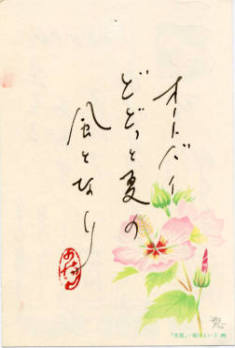 オートバイ
どどっと夏の
風となり